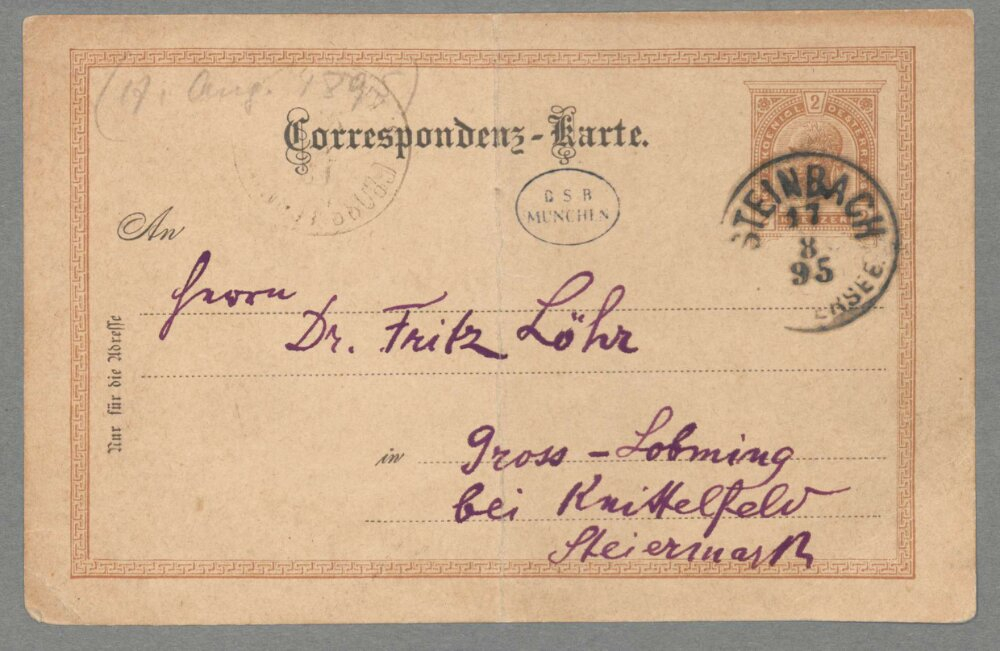 (17. Aug. 1895)
Correspondenz-Karte.
2
BSB
MÜNCHEN
STEINBACH
17
8
95
ERSEE
An
Herrn
Dr. Fritz Löhr
Nur für die Adresse
in Gross-Lobming
bei Knittelfeld
Steiermark